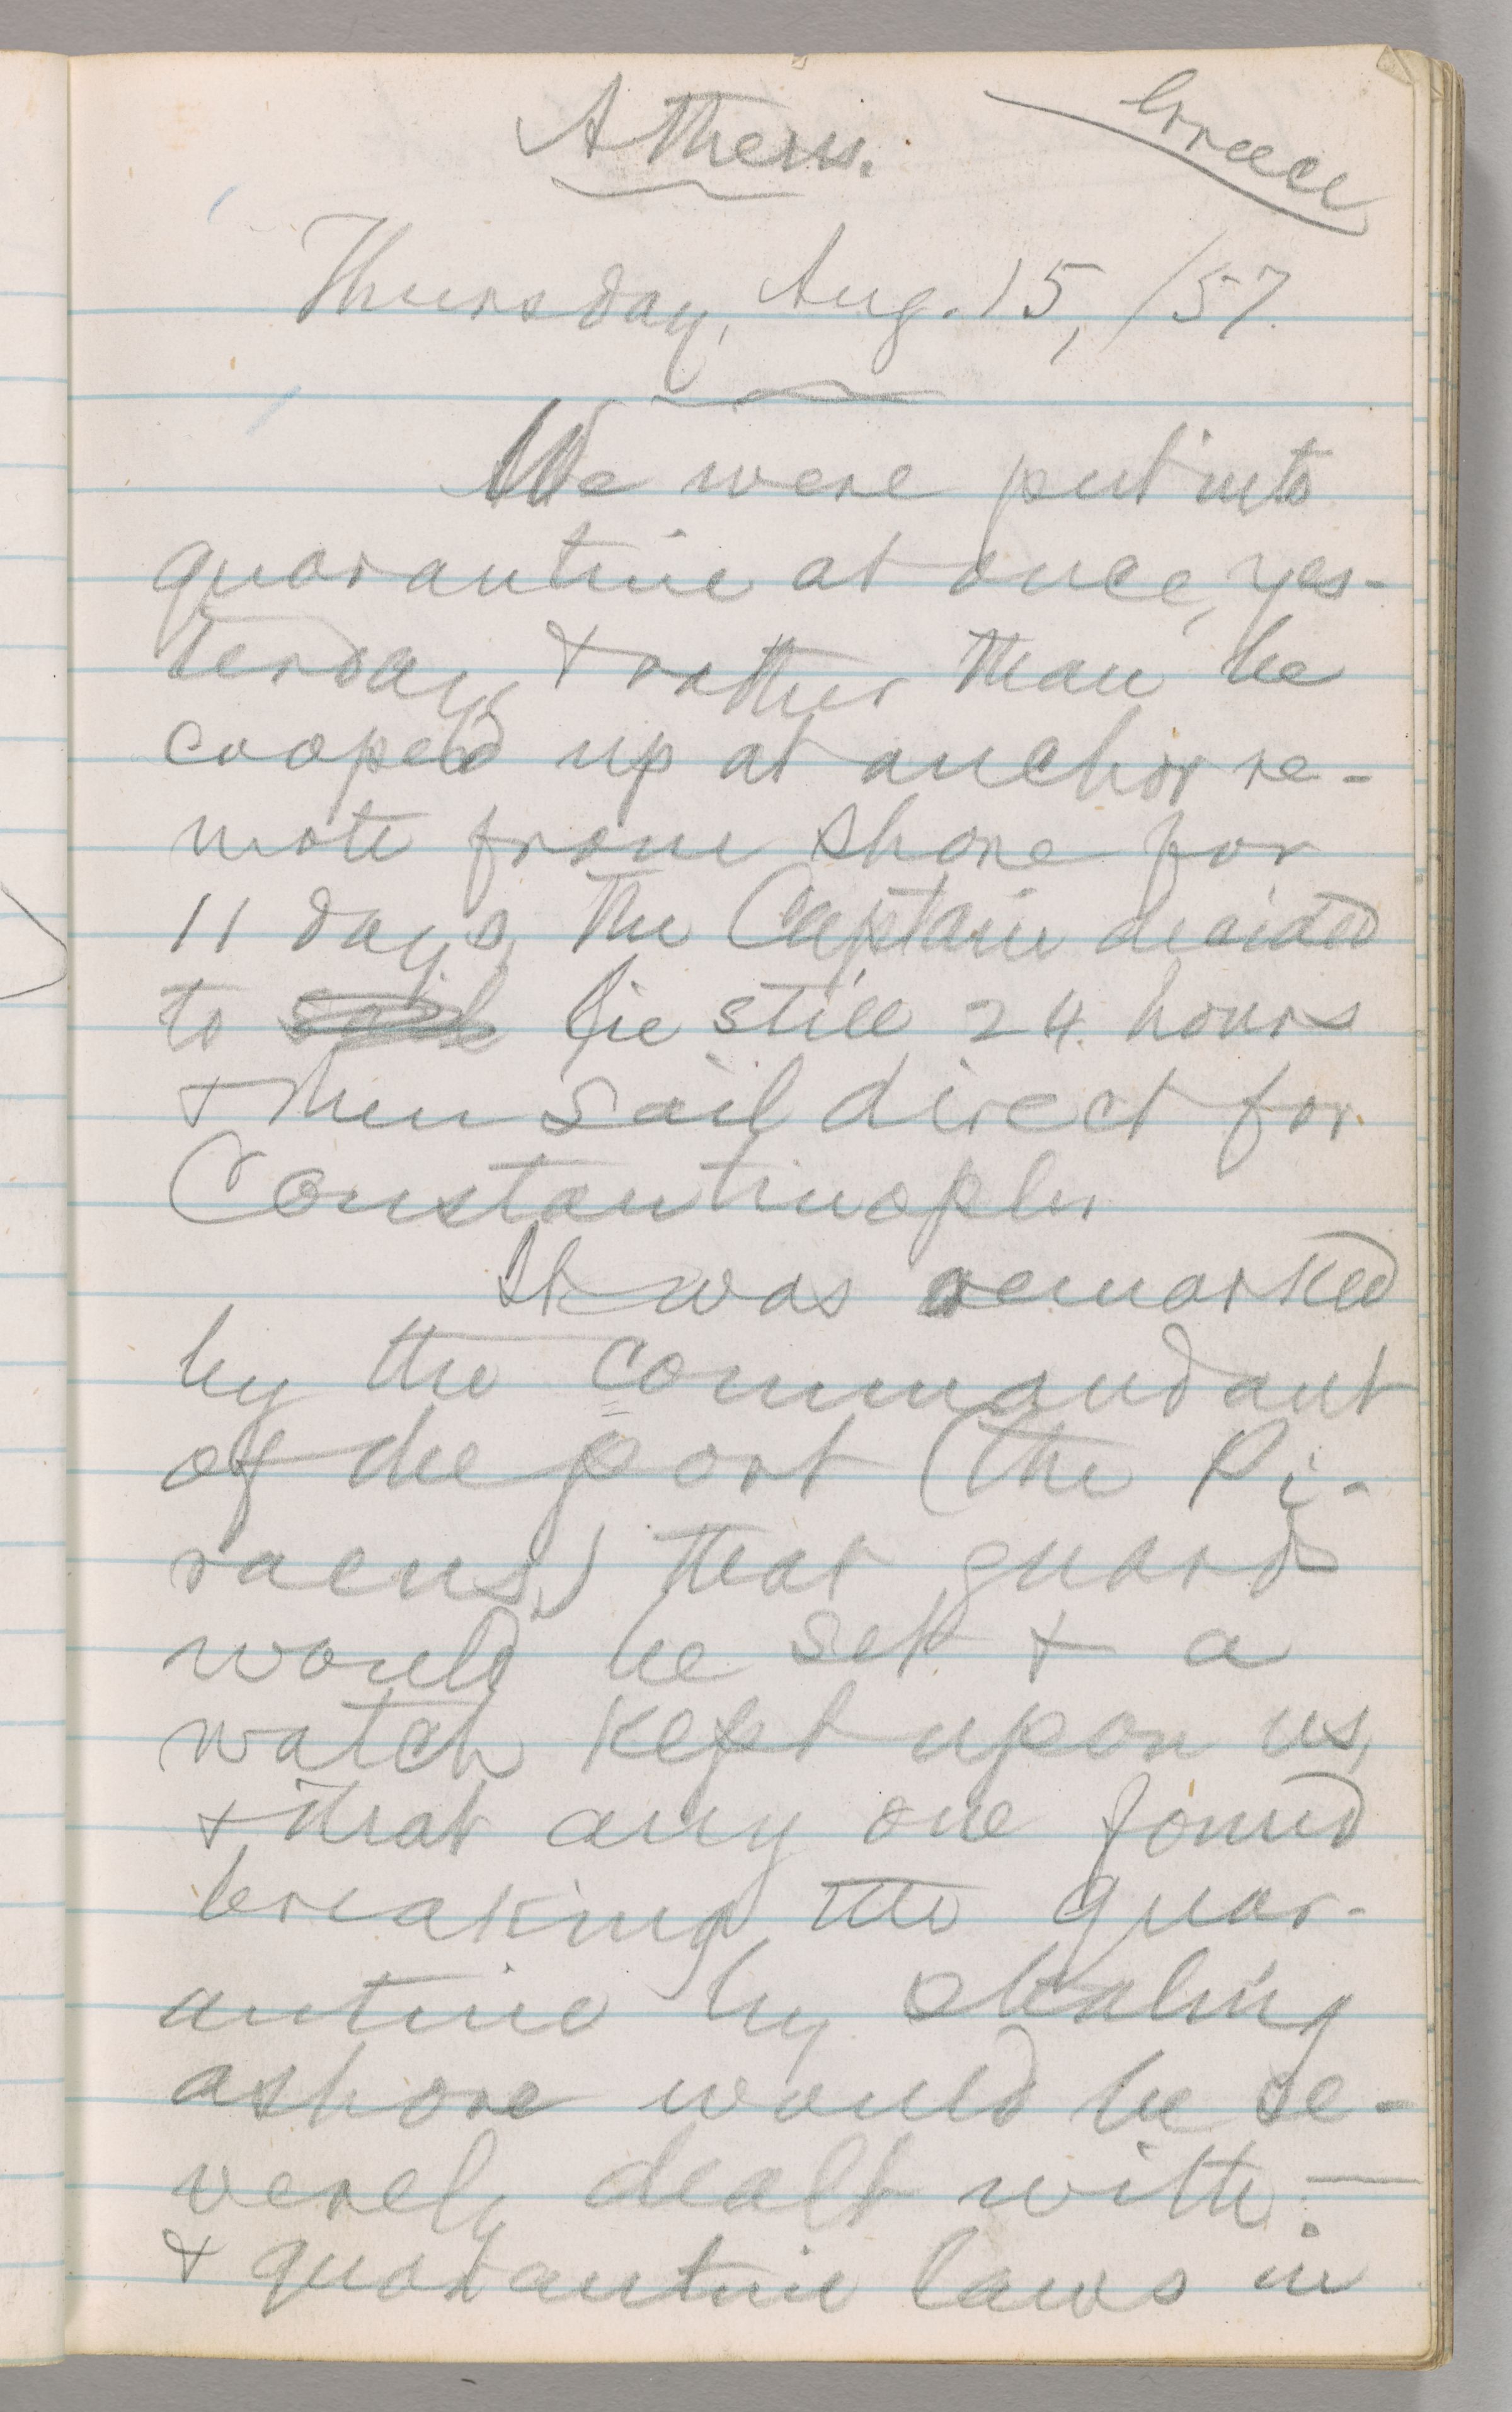 Athens.
Greece
Thursday, Aug. 15, /57.
We were put into
quarantine at once, yes-
terday, & rather than be
cooped up at anchor re-
mote from shore for
11 days, the Captain decided
to sail lie still 24 hours
& then sail direct for
Constantinople.
It was remarked
by the commandant
of the port (the Pi-
raeus,) that guard
would be set & a
watch kept upon us,
& that any one found
breaking the quar-
antine by stealing
ashore would be se-
verely dealt with: —
& quarantine laws in